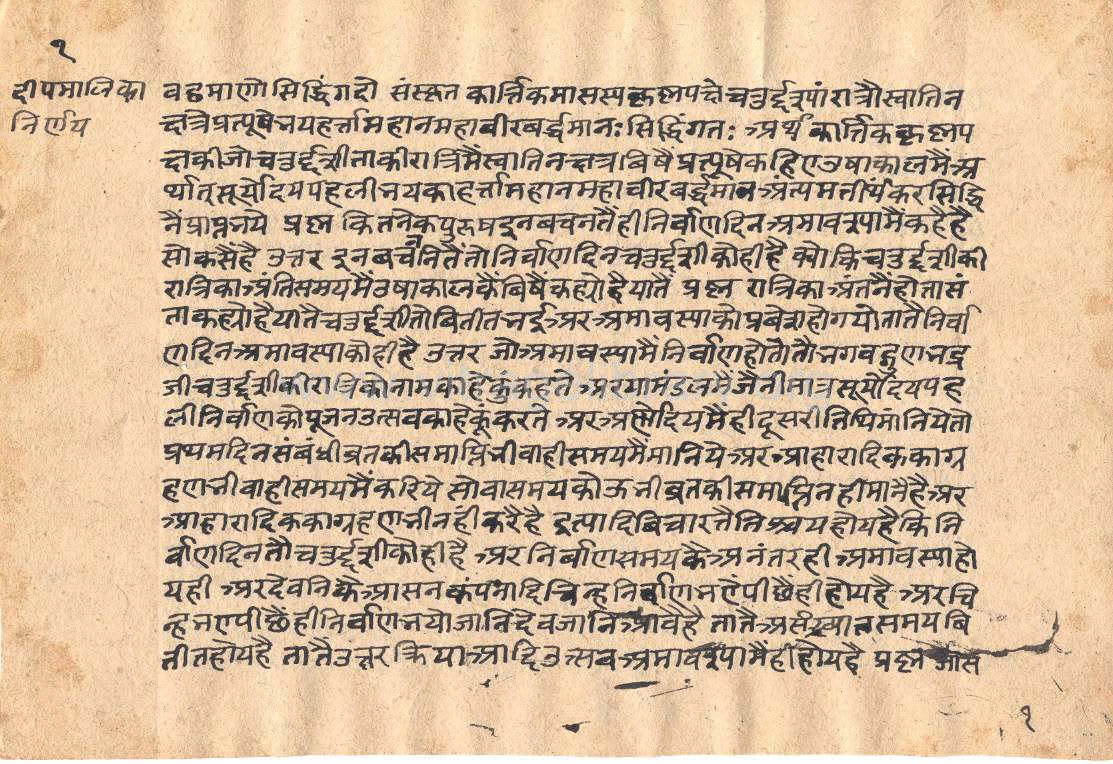 १
दीपमालिका
निर्णय
वढमाणो सिद्धिंगदो संस्कृत कार्त्तिकमासस्य कृष्णपक्षे चतुर्द्दश्यां रात्रौ स्वातिन
क्षत्रे प्रत्यूषे भयहर्त्ता महान महावीरवर्द्धमानः सिद्धिंगतः अर्थ कार्त्तिककृष्णप
क्षकी जो चतुर्द्दशी ताकी रात्रिमैं स्वातिनक्षत्रबिषैं प्रत्यूषे कहिए उषाकालमैं अ
र्थात् सूर्योदयपहली भयका हर्त्ता महान महावीरवर्द्धमान अंत्यमतीर्थंकर सिद्धि
नैं प्राप्त भये प्रश्न कितनेक पुरुष इन बचनतैं ही निर्वाणदिन अमावश्यामैं कहै है
सो कसैं है उत्तर इन बचनतैं तो निर्वाणदिन चतुर्द्दशीको ही है क्योकि चतुर्द्दशीकी
रात्रिका अंतिसमयमैं उषाकालकैं बिषैं कह्यो है यातैं प्रश्न रात्रिका अंतनैं होतासं
ता कह्यो है यातै चतुर्द्दशी तो बितीत भई अर अमावस्याको प्रबेश होगयो तातै निर्वा
णदिन अमावस्याको ही है उत्तर जो अमावस्यामैं निर्वाण होतो तौ भगवद्गुणभद्र
जी चतुर्द्दशीकी रात्रिको नाम काहेकुं कहते अर या मंडलमैं जैनीमात्र सूर्योदयपह
ली निर्वाणको पूजन उत्सव काहेकूं करते अर अलोदयमैं ही दूसरी तिथि मांनिये तो
प्रथमदिनसंबंधी ब्रतकी समाप्ति भी वाही समयमैं मानिये अर आहारादिकका ग्र
हण भी वाही समयमैं करिये सो वा समय कोऊ भी ब्रतकी समाप्ति नही मानै है अर
आहारादिकका ग्रहण भी नहीं करै है इत्यादि बिचारतै निश्चय होय है कि नि
र्वाणदिन तौ चतुर्द्दशीको ही है अर निर्वाणसमयकै अनंतर ही अमावस्या हो
य ही अर देवनिकै आसनकंपनादि चिन्ह निर्वाणभएं पीछैं ही होय है अर चि
न्हभए पीछैं ही निर्वाण भयो जांनि देव जानि आवै है तातै असंख्यातसमय बि
तीत होय है तातै उत्तरक्रिया आदि उत्सव अमावश्यामैं ही होय है प्रश्न
१